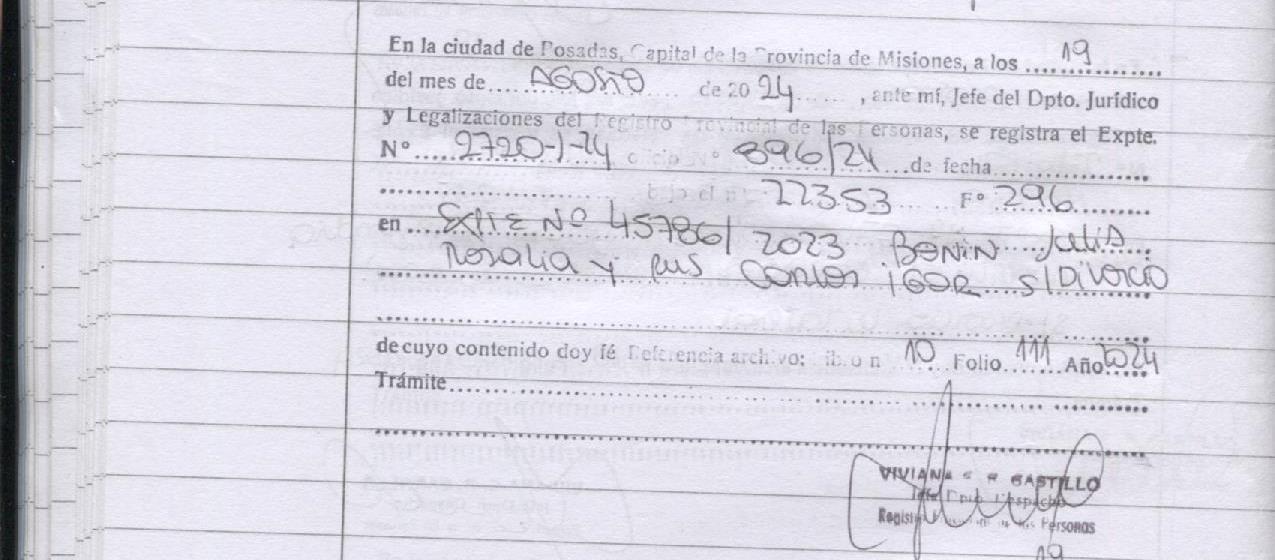 En la ciudad de Posadas, Capital de la Provincia de Misiones, a los 19
del mes de AGOSTO de 20 24, ante mí, Jefe del Dpto. Jurídico
y Legalizaciones del Registro Provincial de las Personas, se registra el Expte.
Nº 2720-J-24 oficio Nº 896/24 de fecha
bajo el nº 22353 Fº 296
en EXPTE Nº 45786/2023 BONIN Julia
Rosalia y RUS Carlos IGOR s/Divorcio
de cuyo contenido doy fé Referencia archivo: libro n 10 Folio 111 Año 2024
Trámite
VIVIANA CASTILLO
Jefe Dpto Despacho
Registro Provincial de las Personas
19